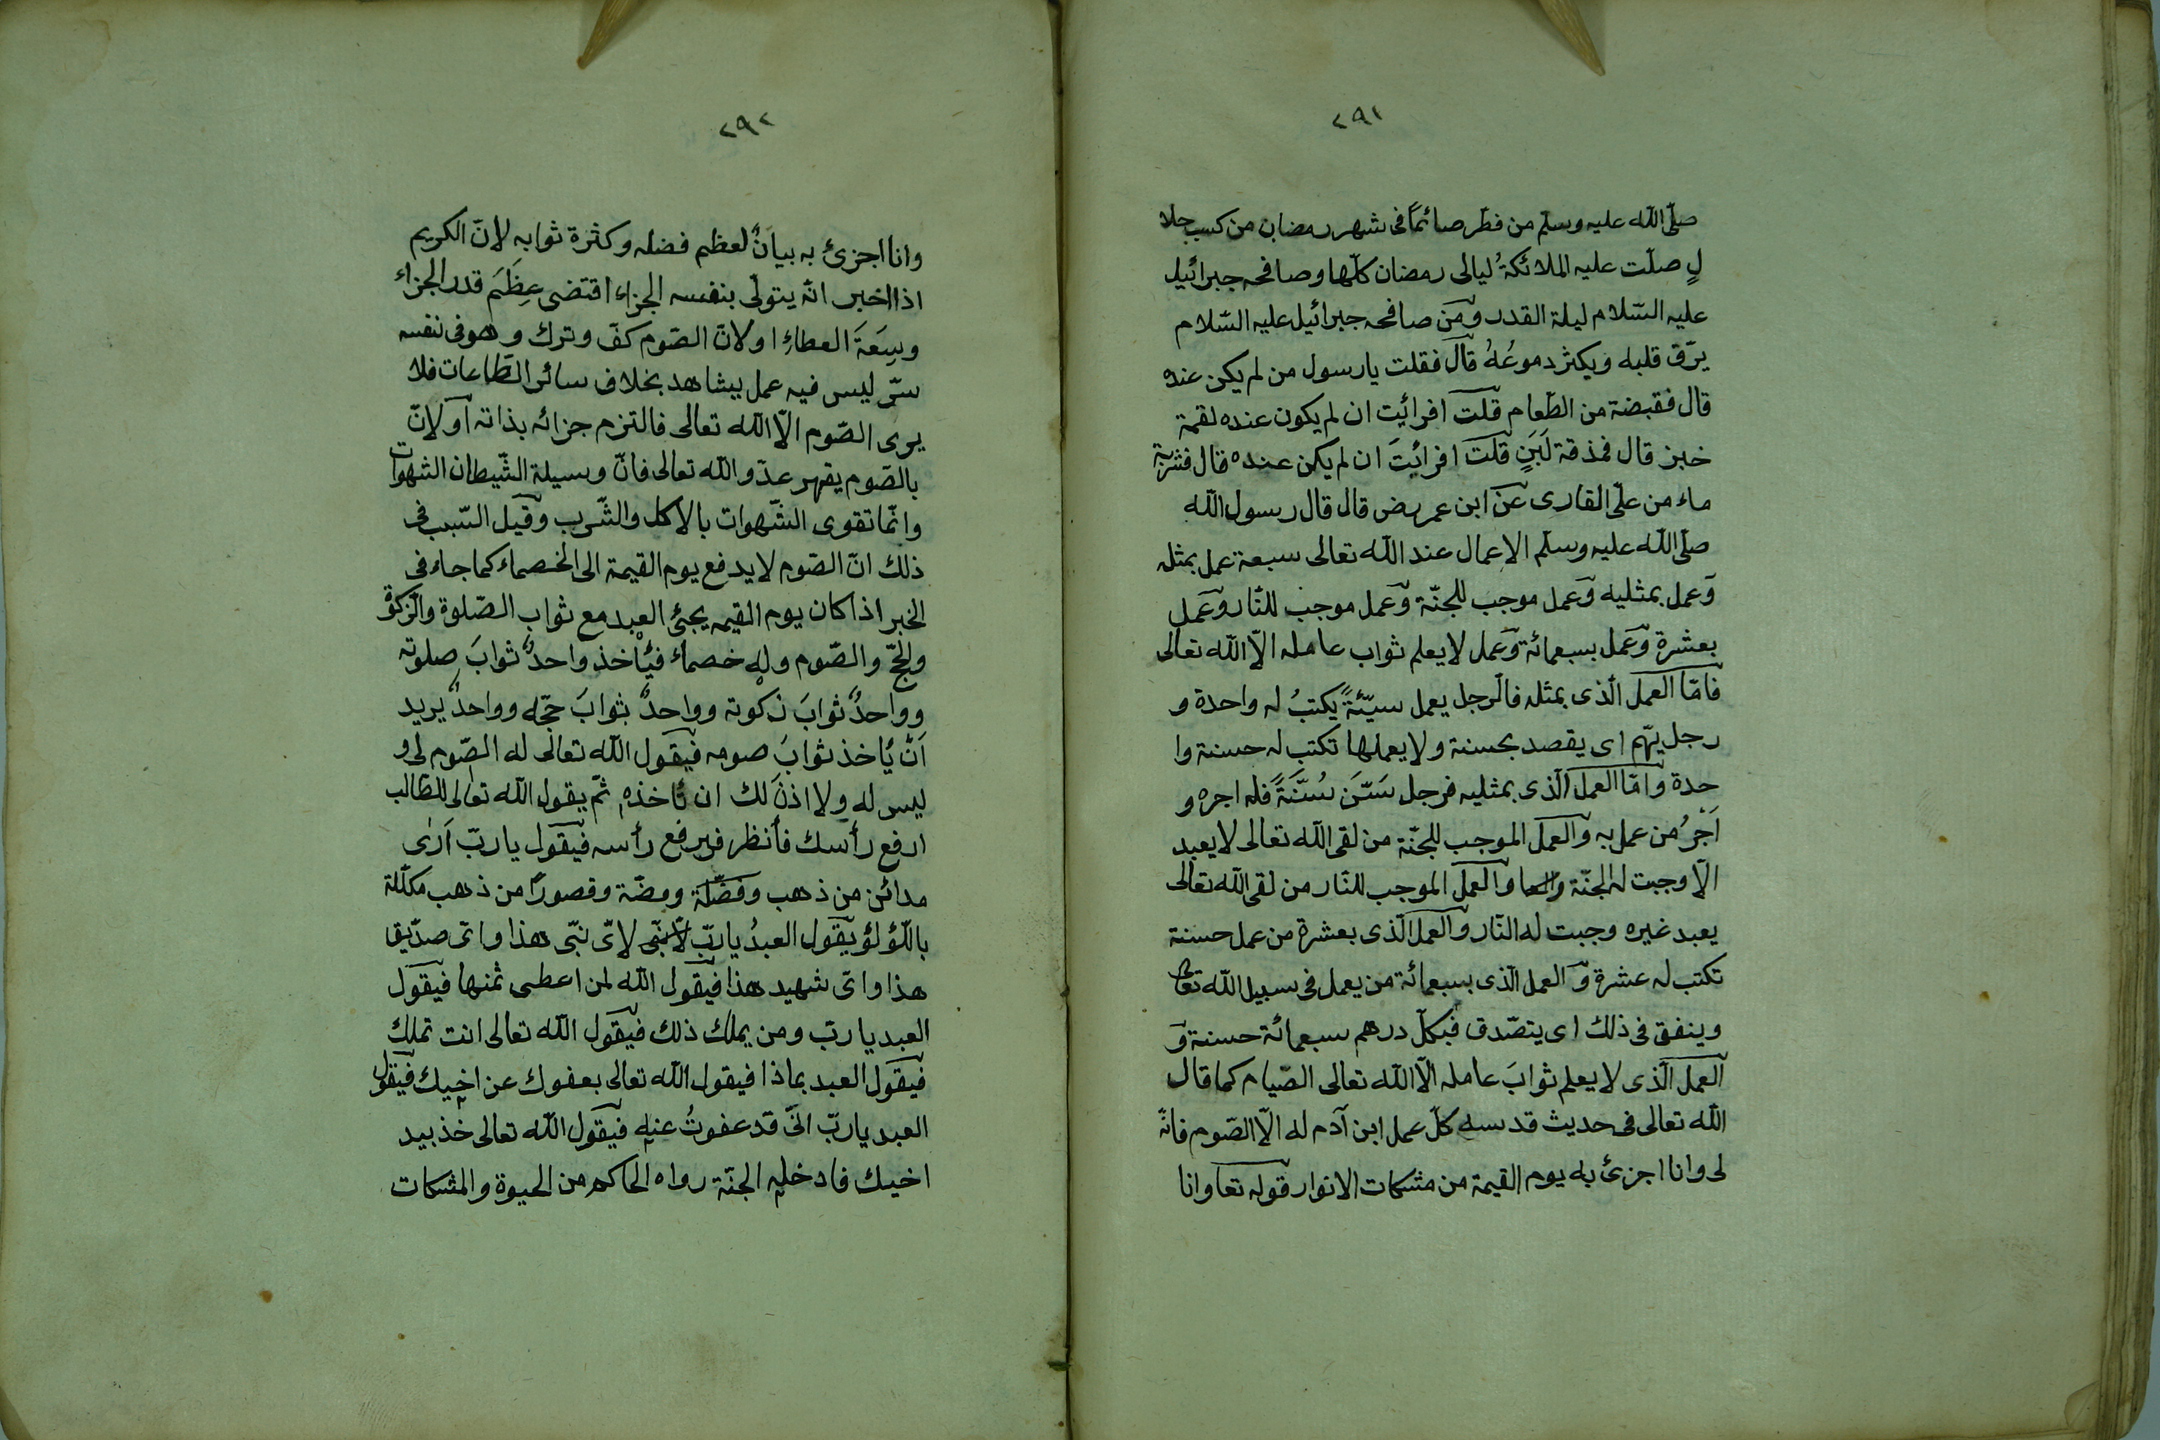 ٢٩١
صلّى الله عليه وسلّم من فطّر صائمًا فى شهر رمضان من كسب حلا
لٍ صلّت عليه الملائكةُ ليالى رمضان كلّها وصافحه جبرائيل
عليه السّلام ليلة القدر ومن صافحه جبرائيل عليه السّلام
يرّق قلبه ويكثر دموعُهُ قال فقلت يا رسول من لم يكن عنده
قال فقبضة من الطّعام قلت افرائيت ان لم يكون عنده لقمة
خبز قال فمذقة لَبَنٍ قلت افرائيتَ ان لم يكن عنده قال فشربة
ماء من علّى القارى عن ابن عمر رض قال قال رسول الله
صلّى الله عليه وسلّم الاعمال عند الله تعالى سبعة عمل بمثله
وعمل بمثليه وعمل موجب للجنّة وعمل موجب للنّار وعمل
بعشرة وعمل بسبعمائة وعمل لا يعلم ثواب عامله الّا الله تعالى
فامّا العمل الّذى بمثله فالرجل يعمل سيّئةً يكتبُ له واحدة و
رجل يهّم اى يقصد بحسنة ولا يعملها تكتب له حسنة وا
حدة وامّا العمل الّذى بمثليه فرجل سَنَّ سُنَّةً فله اجره و
اَجْرُ من عمل به والعمل الموجب للجنّة من لقى الله تعالى لا يعبد
الّا وجبت له الجنّة والعمل الموجب للنّار من لقى الله تعالى
يعبد غيره وجبت له النّار والعمل الّذى بعشرة من عمل حسنة
تكتب له عشرة و العمل الّذى بسبعمائة من يعمل فى سبيل الله تعالى
وينفق فى ذلك اى يتصّدق فبكلّ درهم سبعمائة حسنة و
العمل الّذى لا يعلم ثوابَ عامله الّا الله تعالى الصّيام كما قال
الله تعالى فى حديث قدسه كلّ عمل ابن آدم له الّا الصّوم فانّه
لى وانا اجزئ به يوم القيمة من مشكات الانوار قوله تعا وانا
٢٩٢
وانا اجزئ به بيانٌ لعظم فضله وكثرة ثوابه لانّ الكريم
اذا اخبر انّه يتولّى بنفسه الجزاء اقتضى عِظَمَ قدر الجزاء
وسِعَةَ العطاءِ او لانّ الصّوم كفّ وترك وهو فى نفسه
سّر ليس فيه عمل يشاهد بخلاف سائر الطّاعات فلا
يرى الصّوم الّا الله تعالى فالتزم جزائه بذاته او لانّ
بالصّوم يقهر عدّو الله تعالى فانّ وسيلة الشّيطان الشهوات
وانّما تقوى الشّهوات بالاكل والشّرب وقيل السّبب فى
ذلك انّ الصّوم لا يدفع يوم القيمة الى الخصماء كما جاء فى
الخبر اذا كان يوم القيمه يجئ العبد مع ثواب الصّلوة والزّكوة
والحجّ والصّوم وله خصماء فيُأخذ واحدٌ ثوابَ صلوته
وواحدٌ ثوابَ زكوته وواحدٌ ثوابَ حجّه وواحدٌ يريد
اَنْ يُاخذ ثوابَ صومه فيقول الله تعالى له الصّوم لى و
ليس له ولا اذن لك ان تأخذه ثمّ يقول الله تعالى للطّالب
ارفع رأسك فأنظر فيرفع رأسه فيقول يا ربّ اَرٰى
مدائن من ذهب وفضّة وقصورًا من ذهب مكلّلة
باللّؤلؤ يقول العبدُ يا ربّ لاىّ نبّى هذا واىّ صدّيق
هذا واىّ شهيد هذا فيقول الله لمن اعطى ثمنها فيقول
العبد يا ربّ ومن يملك ذلك فيقول الله تعالى انت تملك
فيقول العبد بماذا فيقول الله تعالى بعفوك عن اخيك فيقول
العبد يا ربّ انّى قد عفوتُ عنه فيقول الله تعالى خذ بيد
اخيك فادخله الجنّة رواه الحاكم من الحيوة والمشكات